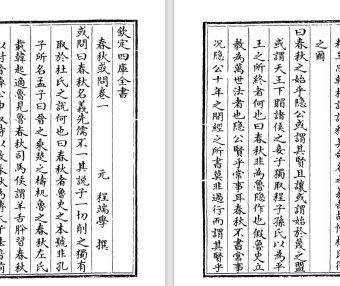 欽定四庫全書
春秋或問卷一
元 程端學 撰
或問曰春秋名義先儒不一其説子一切削之獨有
取於杜氏之説何也曰春秋者魯史之本號非孔
子所名孟子曰晉之乘楚之檮杌魯之春秋左氏
載韓起適魯見魯春秋司馬侯謂羊舌肸習春秋
之爾
曰春秋之始乎隱公或謂其賢且讓或謂始於茂之盟
或謂天王下賵諸侯之妾子獨取程子孫氏以為平
王之所終者何也曰春秋非為魯隱作也假魯史立
教為萬世法者也隱公賢乎常事耳春秋不書常事
况隱公十年之間經之所書莫非過行而謂其賢乎